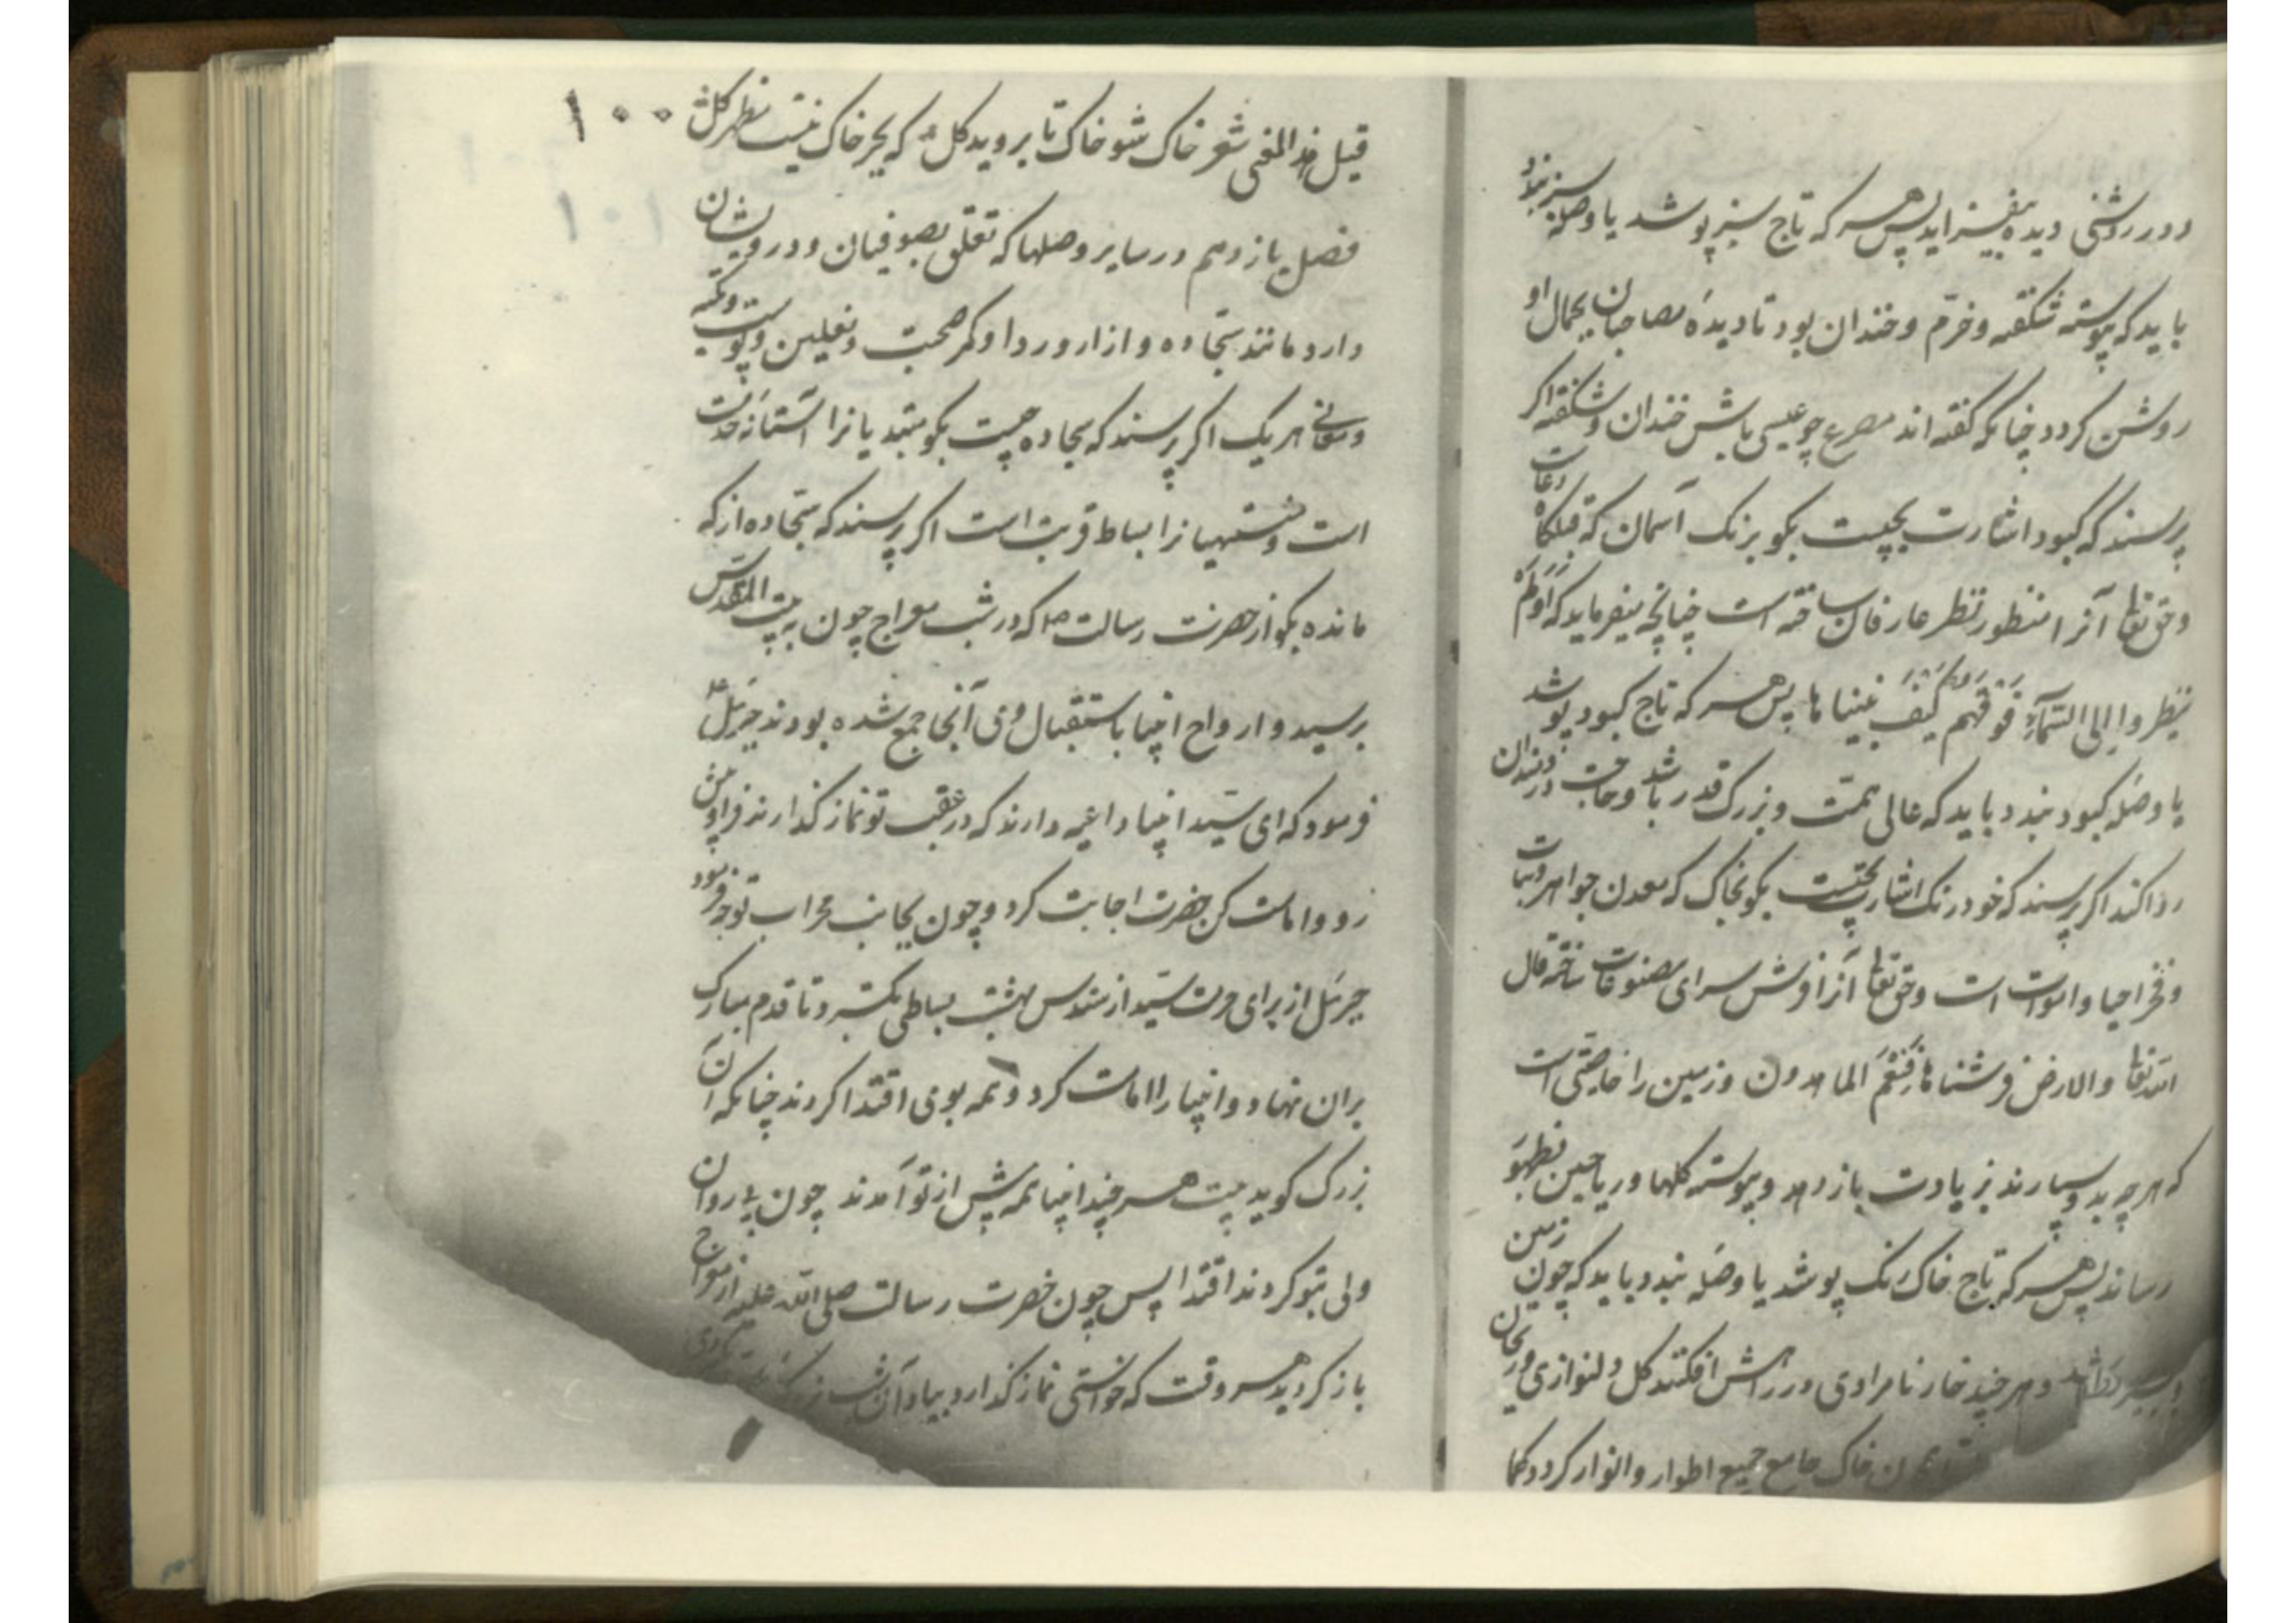 و در روشنی دیده بیفزاید پس هر که تاج سبز پوشد یا وصله سبز بندد
باید که پیوسته شکفته و خرّم و خندان بود تا دیدهٔ مصاحبان بجمال او
روشن کردد چنانکه کفته اند مصرع چو عیسی باش خندان و شکفته اکر
پرسند که کبود اشارت بچیست بکو برنک آسمان که قبلکاه دعات
و حق تعالی آنرا منظور نظر عارفان ساخته است چنانچه میفرماید که اَوَلَم
ینظروا الی السّمآءِ فَوقَهُم کَیفَ بنیناها پس هر که تاج کبود پوشد
یا وصله کبود بندد باید که عالی همّت و بزرک قدر باشد و حاجت دردمندان
روا کند اکر پرسند که خود رنک اشارت بچیست بکو بخاک که معدن جواهر و نبات
و فخر احیا و اموات است و حق تعالی آنرا فرش سرای مصنوعات ساخته قال
الله تعالی والارض فرشناها فَنِعْمَ الماهدون و زمین را خاصیّتی است
که هر چه بدو سپارند زیادت باز دهد و پیوسته کلها و ریاحین بظهور
رساند پس هر که تاج خاک رنک پوشد یا وصله بندد باید که چون زمین
و هر چند خار نامرادی در راهش افکنند کل دلنوازی و ریحان
خاک جامع جمیع اطوار و انوار کردد کما
۱۰۰
قیل هذا المعنی شعر خاک شو خاک تا بروید کل که بجز خاک نیست مظهر کل
فصل یازدهم در سایر وصلها که تعلق بصوفیان و درویشان
دارد مانند سجّاده و ازار و ردا و کمر صحبت و نعلین و پوست و تکیه
و معانی هر یک اکر پرسند که سجاده چیست بکو مبتدیانرا آستانهٔ خدمت
است و منتهیانرا بساط قربت است اکر پرسند که سجّاده از که
مانده بکو از حضرت رسالت ص که در شب معراج چون به بیت المقدّس
برسید و ارواح انبیا باستقبال وی آنجا جمع شده بودند جبرئیل ع
فرمود که ای سیّد انبیا داعیه دارند که در عقب تو نماز کذارند فرا پیش
رو و امامت کن حضرت اجابت کرد و چون بجانب محراب توجه فرمود
جبرئیل از برای حرمت سیّد از سندس بهشت بساطی بکسترد تا قدم مبارک
بران نهاد و انبیا را امامت کرد و همه بوی اقتدا کردند چنانکه آن
بزرک کوید بیت هر چند انبیا همه پیش از تو آمدند چون پی روان
ولی بتو کردند اقتدا پس چون حضرت رسالت صلی الله علیه از معراج
باز کردید هر وقت که خواستی نماز کذارد بیاد آن شب